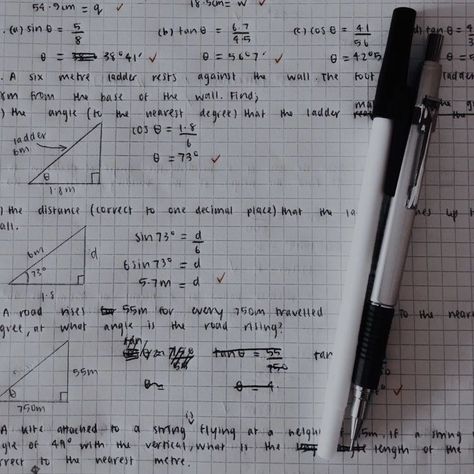 54.9cm = q ✓ 18.5cm = w ✓
(a) sin θ = 5/8 (b) tan θ = 6.7/4.5 (c) cos θ = 41/56 d) tan θ =
θ = 38°41' ✓ θ = 56°7' ✓ θ = 42°5
A six metre ladder rests against the wall. The foot ladde
from the base of the wall. Find,
) the angle (to the nearest degree) that the ladder
ladder 6m θ 1.8m
cos θ = 1.8/6
θ = 73° ✓
) the distance (correct to one decimal place) that the la hes up
all.
6m 73° d 1.8
sin 73° = d/6
6 sin 73° = d
5.7m = d ✓
A road rises 55m for every 750m travelled To the neare
gree, at what angle is the road rising?
θ 55m 750m
tan θ = 55/750 tan
θ = 4
A kite attached to a string (is) flying at a height 5m, if a string
gle of 49° with the vertical, what is the length of the
rrect to the nearest metre.